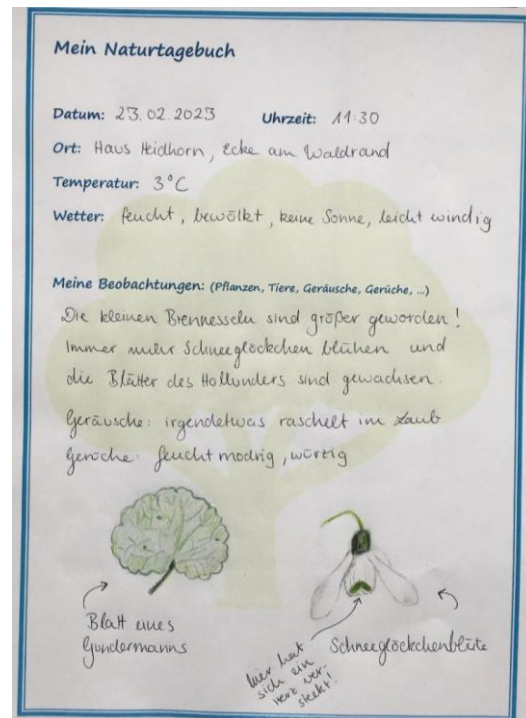 Mein Naturtagebuch
Datum: 23.02.2023 Uhrzeit: 11:30
Ort: Haus Heidhorn, Ecke am Waldrand
Temperatur: 3°C
Wetter: feucht, bewölkt, keine Sonne, leicht windig
Meine Beobachtungen: (Pflanzen, Tiere, Geräusche, Gerüche, ...)
Die kleinen Brennesseln sind größer geworden!
Immer mehr Schneeglöckchen blühen und
die Blätter des Hollunders sind gewachsen.
Geräusche: irgendetwas raschelt im Laub
Gerüche: feucht modrig, würzig
Blatt eines
Gundermanns
hier hat
sich ein
Herz ver-
steckt!
Schneeglöckchenblüte